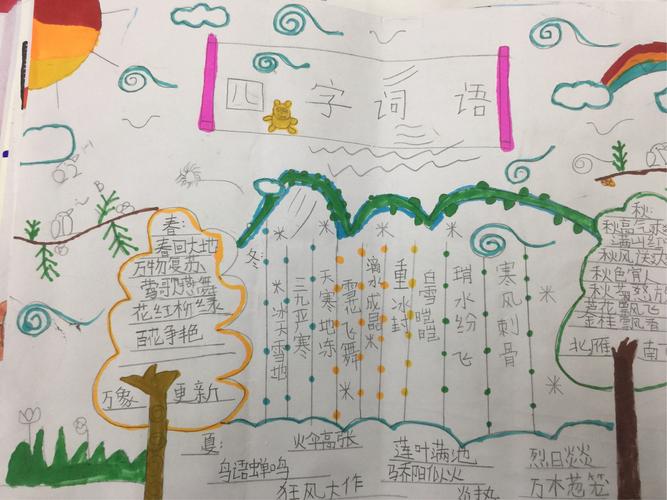 四字词语
春:
春回大地
万物复苏
莺歌燕舞
花红柳绿
百花争艳
万象更新
冬:
冰天雪地
三九严寒
天寒地冻
雪花飞舞
滴水成晶
重冰封
白雪皑皑
瑞水纷飞
寒风刺骨
秋:
秋高气
满山红
秋风
秋色宜人
秋菊
飘飞
金桂飘香
北雁南
夏:
火伞高张
莲叶满池
烈日炎炎
鸟语蝉鸣
骄阳似火
狂风大作
炎热
万木葱茏